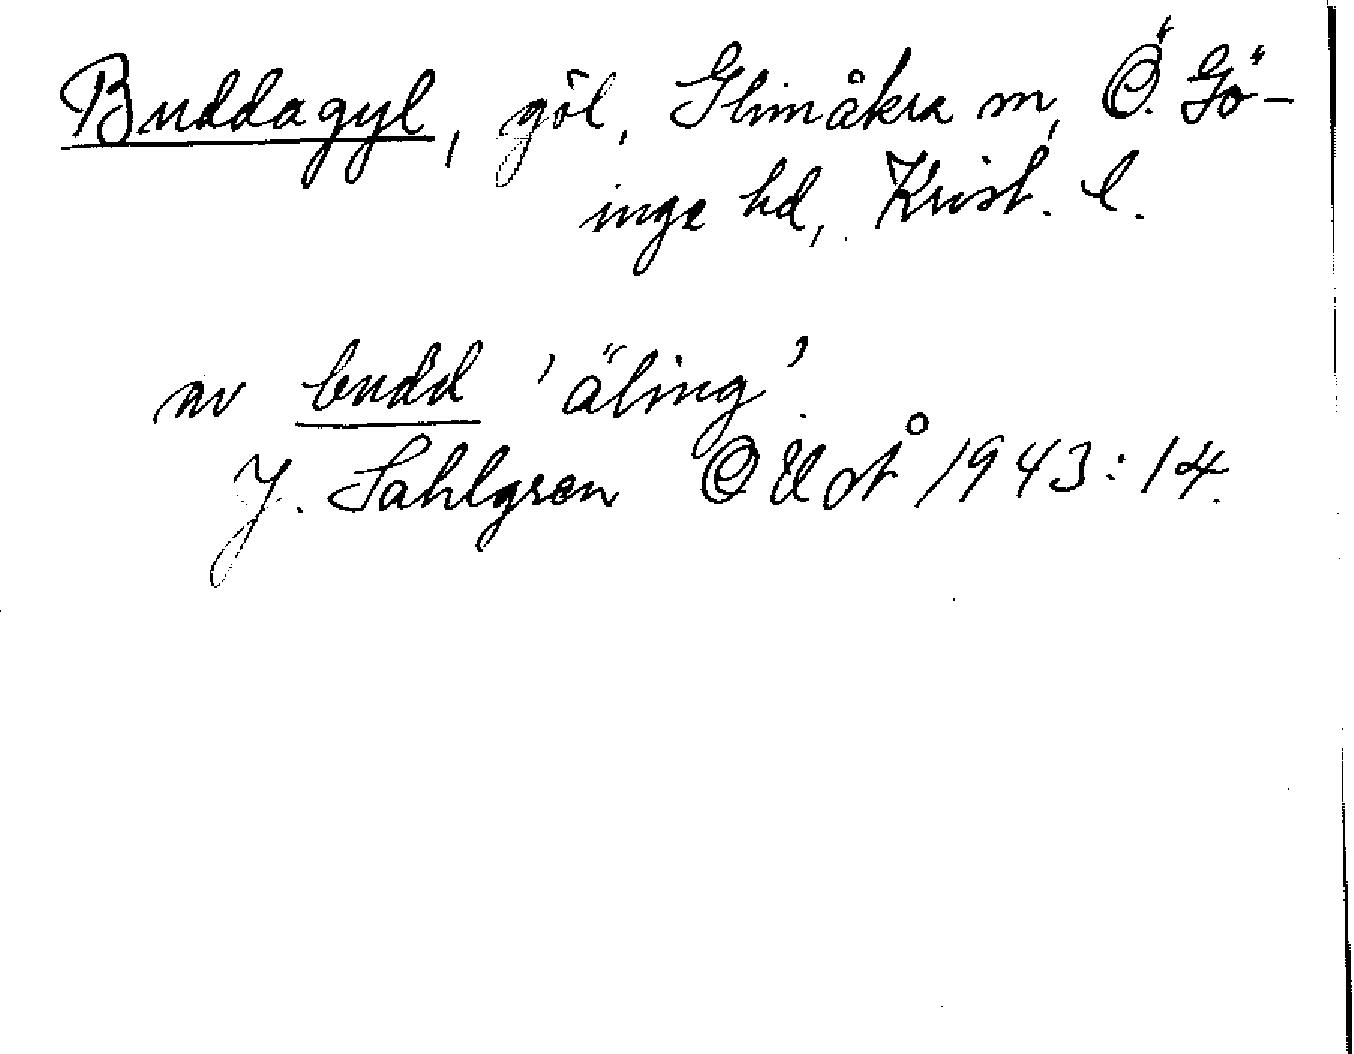 Buddagyl, göl, Glimåkra sn, Ö. Gö-
inge hd, Krist. l.
av budd 'äling'
J. Sahlgren OUÅ 1943:14.